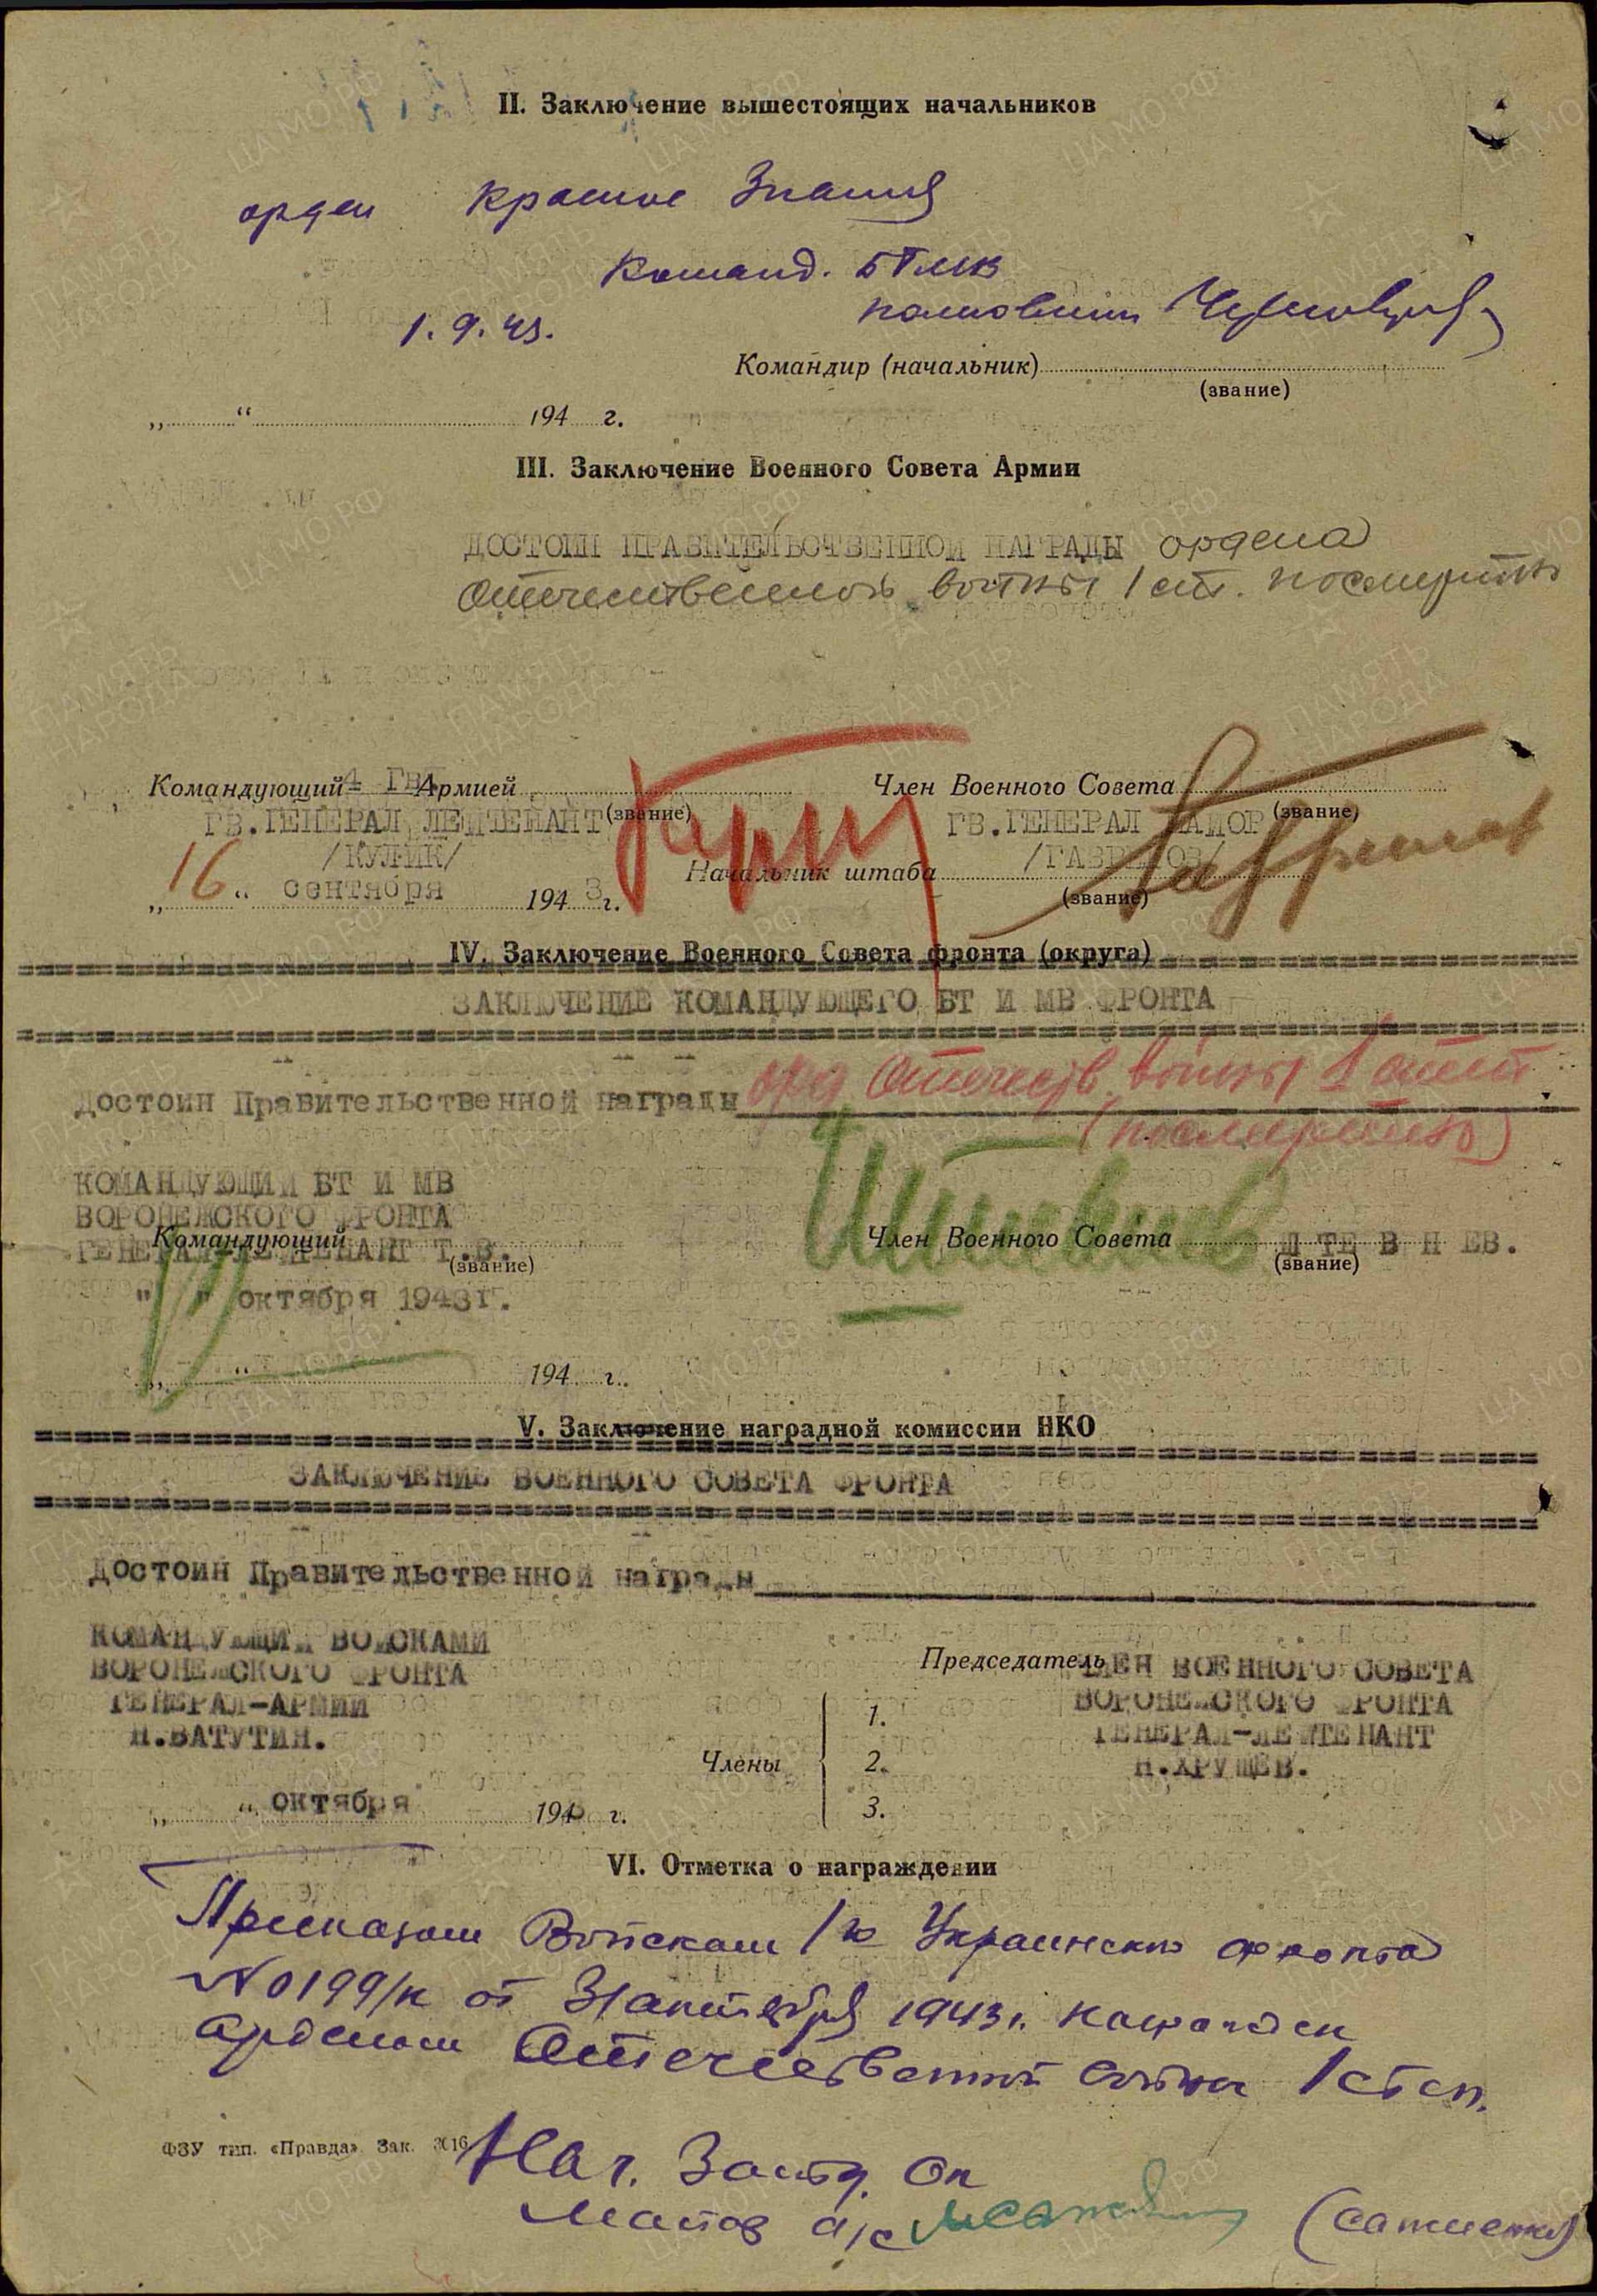 II. Заключение вышестоящих начальников
орден Красное Знамя
Команд. БТ и МВ
полковник
1.9.43.
Командир (начальник)
(звание)
„ “ 194 г.
III. Заключение Военного Совета Армии
ДОСТОИН ПРАВИТЕЛЬСТВЕННОЙ НАГРАДЫ ордена
Отечественной войны 1 ст. посмертно
Командующий 4 Гв. Армией
(звание)
Член Военного Совета
(звание)
ГВ.ГЕНЕРАЛ ЛЕЙТЕНАНТ
ГВ.ГЕНЕРАЛ МАЙОР
/КУЛИК/
/ГАВРИЛОВ/
Начальник штаба
(звание)
„16“ сентября 1943 г.
IV. Заключение Военного Совета фронта (округа)
ЗАКЛЮЧЕНИЕ КОМАНДУЮЩЕГО БТ И МВ ФРОНТА
Достоин Правительственной награды орд Отечеств. войны 1 степ
(посмертно)
КОМАНДУЮЩИЙ БТ И МВ
ВОРОНЕЖСКОГО ФРОНТА
Командующий
(звание)
ГЕНЕРАЛ-ЛЕЙТЕНАНТ Т.В.
Член Военного Совета
(звание)
ШТЕВНЕВ.
" " октября 1943г.
„ “ 194 г.
V. Заключение наградной комиссии НКО
ЗАКЛЮЧЕНИЕ ВОЕННОГО СОВЕТА ФРОНТА
Достоин Правительственной награды
КОМАНДУЮЩИЙ ВОЙСКАМИ
ВОРОНЕЖСКОГО ФРОНТА
ГЕНЕРАЛ-АРМИИ
Н.ВАТУТИН.
Председатель
ЧЛЕН ВОЕННОГО СОВЕТА
ВОРОНЕЖСКОГО ФРОНТА
ГЕНЕРАЛ-ЛЕЙТЕНАНТ
Н.ХРУЩЕВ.
Члены
1.
2.
3.
„ “ октября 1943 г.
VI. Отметка о награждении
Приказом Войскам 1го Украинского фронта
№0199/н от 31 октября 1943г. награжден
орденом Отечественной войны 1 степ.
ФЗУ тип. «Правда» Зак. 3016
Нач. Оп
а/с